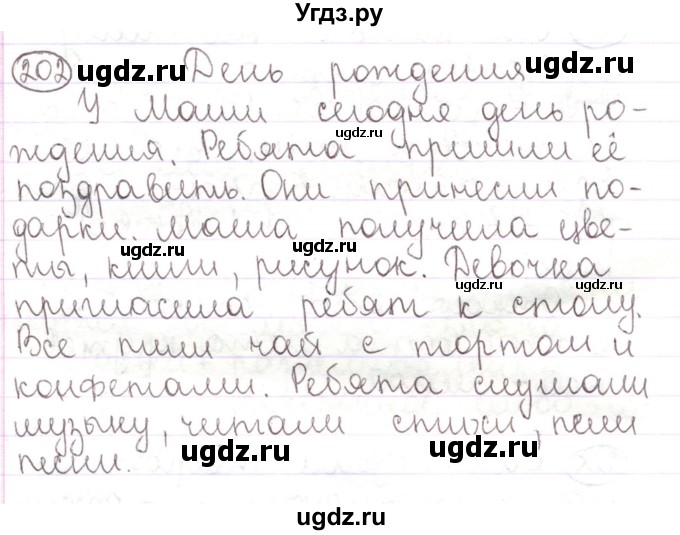 Угдз.ру
202 ugdz.ru День рождения
У Маши сегодня день ро-
ugdz.ru
ждения. Ребята пришли её
поздравить. Они принесли по-
дарки. Маша получила цве-
ugdz.ru ugdz.ru
ты, книги, рисунок. Девочка
пригласила ребят к столу.
Все пили чай с тортом и
конфетами. Ребята слушали
музыку, читали стихи, пели
ugdz.ru ugdz.ru
песни.
ugdz.ru